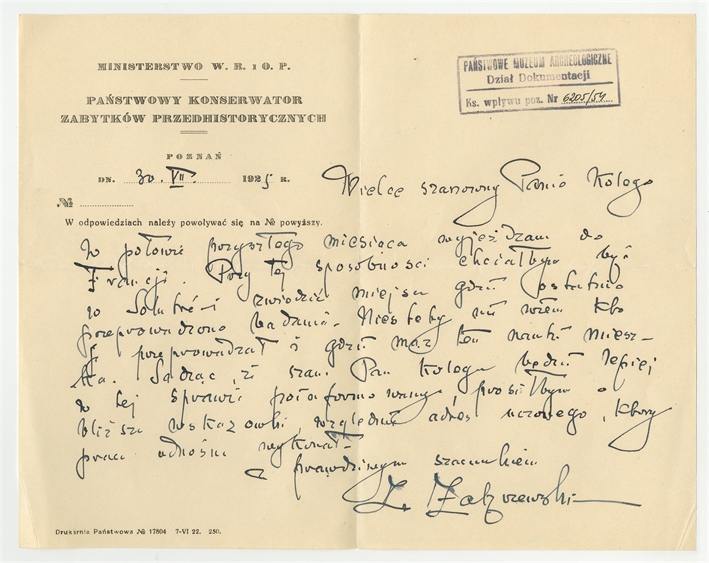 MINISTERSTWO W. R. i O. P.
PAŃSTWOWY KONSERWATOR
ZABYTKÓW PRZEDHISTORYCZNYCH
POZNAŃ
DN. 30. VII. 1925 R.
№
W odpowiedziach należy powoływać się na № powyższy.
PAŃSTWOWE MUZEUM ARCHEOLOGICZNE
Dział Dokumentacji
Ks. wpływu poz. Nr 6205/54
Wielce szanowny Panie Kolego
W połowie przyszłego miesiąca wyjeżdżam do
Francji. Przy tej sposobności chciałbym być
w Solutré i zwiedzić miejsca gdzie ostatnio
przeprowadzono badania. Niestety nie wiem kto
je przeprowadzał i gdzie mąż ten nauki miesz-
ka. Sądząc, iż szan. Pan Kolega będzie lepiej
w tej sprawie poinformowany, prosiłbym o
bliższe wskazówki, względnie adres uczonego, który
prace odnośne wykonał.
Z prawdziwym szacunkiem
Z. Zakrzewski
Drukarnia Państwowa № 17804 7-VI 22. 250.